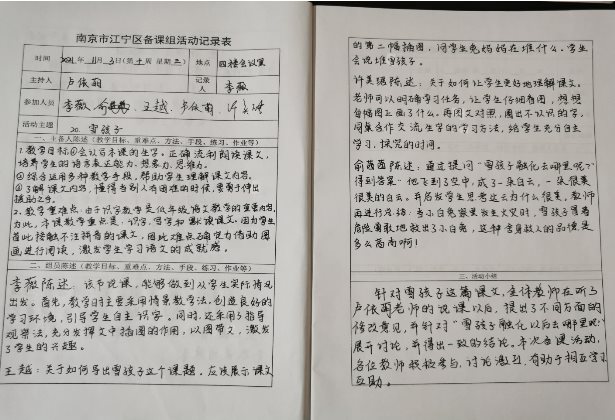 南京市江宁区备课组活动记录表
时间 2021年11月3日(第十周 星期三) 地点 四楼会议室
主持人 卢依萌 记录人 李薇
参加人员 李薇、俞茜茜、王越、卢依萌、许美琪
活动主题 20.雪孩子
一、主备人陈述(教学目标、重难点、方法、手段、练习、作业等)
1.教学目标①会认写本课的生字。正确流利朗读课文,
培养学生的语言表达能力、想象力、思维力。
②综合运用多种教学手段,帮助学生理解课文内容。
③了解课文内容,懂得当别人有困难的时候,要勇于伸出
援助之手。
2.教学重难点:由于识字教学是低年级语文教学的重要内容,
为此,本课教学重点是:识字、写字和默读课文。因为学生
首次接触不注拼音的课文,因此难点确定为借助图
画进行阅读,激发学生学习语文的成就感。
二、组员陈述(教学目标、重难点、方法、手段、练习、作业等)
李薇陈述:该节说课,能够做到从学生实际情况
出发。首先,教学时主要采用情景教学法,创造良好的
学习环境,引导学生自主识字。同时,还采用了指导
观察法,充分发挥文中插图的作用,以图带文,激发
了学生的兴趣。
王越:关于如何导出雪孩子这个课题,应该展示课文
的第二幅插图,问学生兔妈妈在堆什么。学生
会说堆雪孩子。
许美琪陈述:关于如何让学生更好地理解课文。
老师可以明确学习任务,让学生仔细看图,想想
每幅图上画了什么,再图文对照,圈出不认识的字,
同桌合作交流生字的学习方法,给学生充分自主
学习、探究的时间。
俞茜茜陈述:通过提问"雪孩子融化去哪里呢?"
得到答案"他飞到了空中,成了一朵白云,一朵很美
很美的白云。并启发学生思考这么为什么很美,教师
再进行总结:当小白兔家里发生火灾时,雪孩子冒着
危险勇敢地救出了小白兔,这种舍身救人的品德是
多么高尚啊!
三、活动小结
针对雪孩子这篇课文,主讲教师在听了
卢依萌老师的说课以后,提出了不同方面的
修改意见,并针对"雪孩子融化以后去哪里呢?"
展开讨论,并得出一致的结论。本次备课活动,
各位教师积极参与,讨论激烈,有助于相互学习
互助。